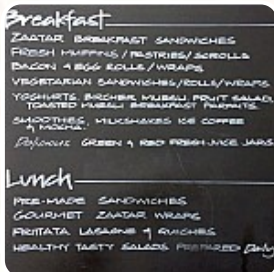 Breakfast
ZAATAR BREAKFAST SANDWICHES
FRESH MUFFINS / PASTRIES / SCROLLS
BACON & EGG ROLLS / WRAPS
VEGETARIAN SANDWICHES/ROLLS/WRAPS
YOGHURTS, BIRCHER MUESLI, FRUIT SALAD,
TOASTED MUESLI BREAKFAST PARFAITS
SMOOTHIES, MILKSHAKES ICE COFFEE
& MOCHA
Delicious GREEN & RED FRESH JUICE JARS
Lunch
PRE-MADE SANDWICHES
GOURMET ZAATAR WRAPS
FRITTATA LASAGNE & QUICHES
HEALTHY TASTY SALADS PREPARED daily